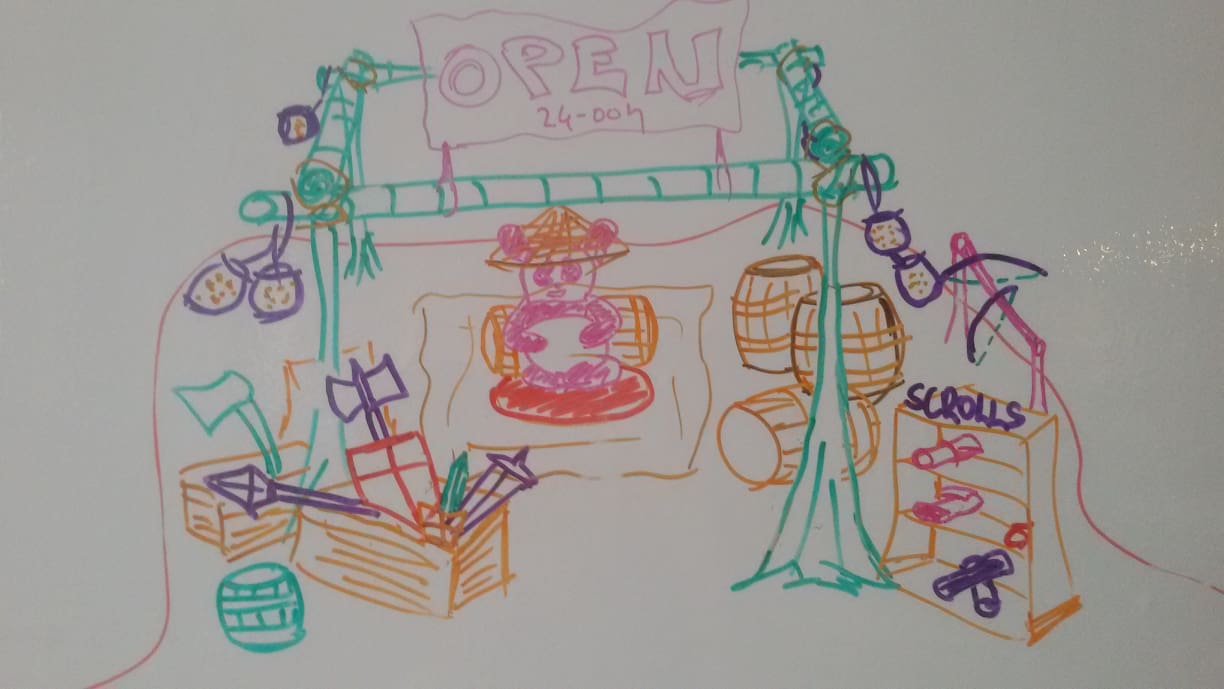 OPEN
24-00h
SCROLLS